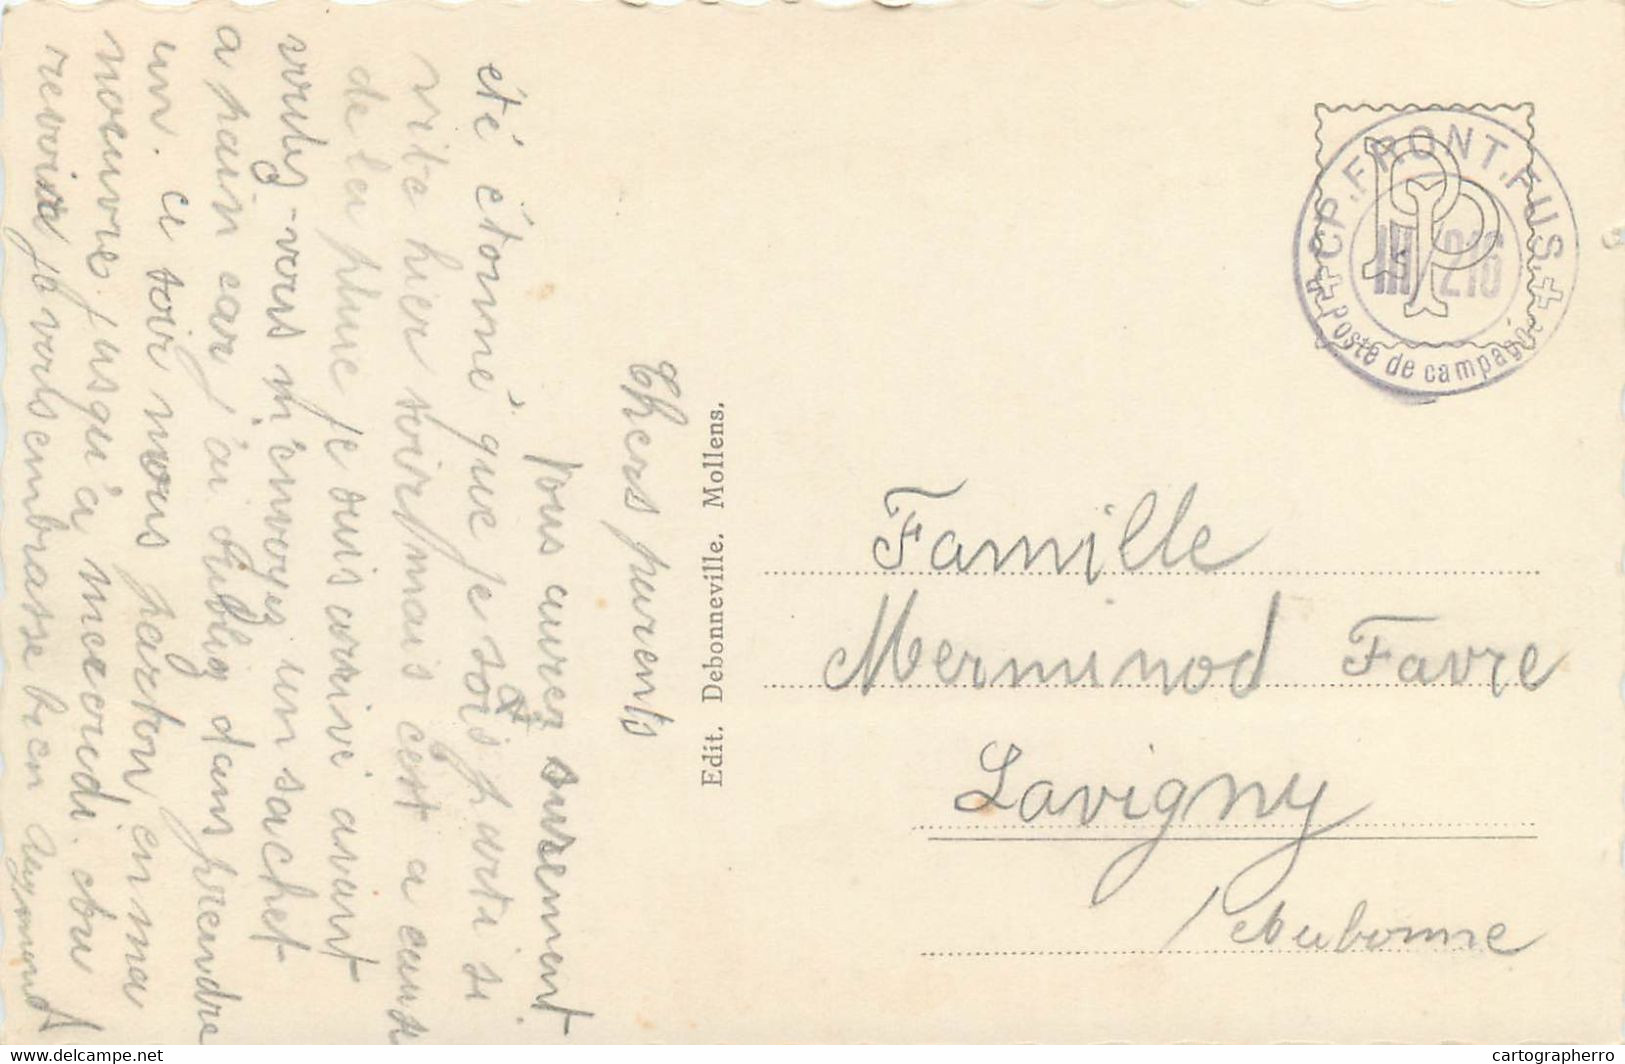 Chers parents
Vous aurez surement
été étonné que je sois parti si
vite hier soir, mais c'est a cause
de la pluie je suis arrivé avant
m'envoyez un sachet
a pain car j'ai oublig dans prendre
un. ce soir nous parton en ma
noeuvre jusqu'a mecordi. Au
revoir je vous embrasse bien Aymond
Edit. Debonneville. Mollens.
CP. FRONT. FUS
III/216
Poste de campagne
PP
Famille
Merminod Favre
Lavigny
s/Aubonne
www.delcampe.net
cartographerro